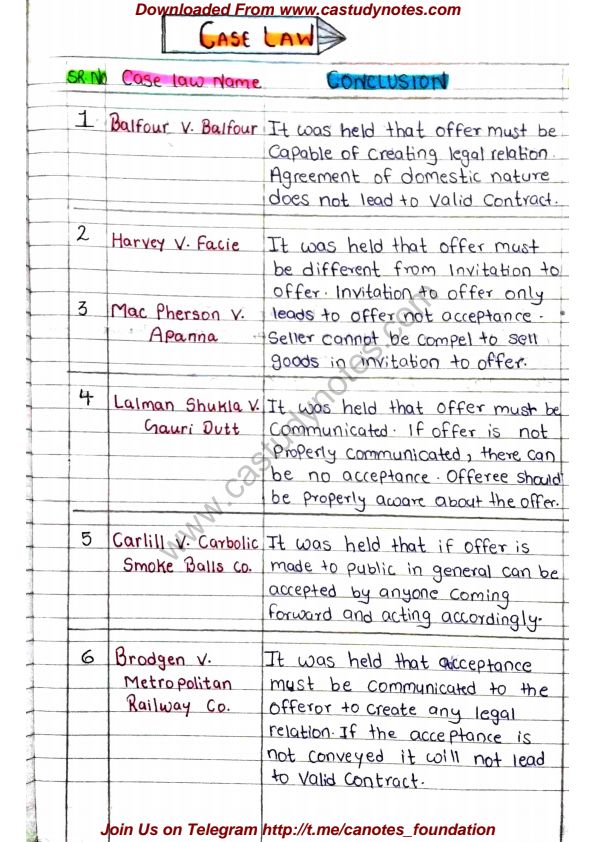 Downloaded From www.castudynotes.com
CASE LAW
SR.NO Case law Name CONCLUSION
1 Balfour v. Balfour It was held that offer must be
Capable of creating legal relation.
Agreement of domestic nature
does not lead to valid Contract.
2 Harvey v. Facie It was held that offer must
be different from Invitation to
offer. Invitation to offer only
3 Mac Pherson v. leads to offer not acceptance.
Apanna Seller cannot be compel to sell
goods in invitation to offer.
4 Lalman Shukla v. It was held that offer must be
Gauri Dutt Communicated. If offer is not
Properly communicated, there can
be no acceptance. Offeree should
be properly aware about the offer.
5 Carlill v. Carbolic It was held that if offer is
Smoke Balls co. made to public in general can be
accepted by anyone coming
forward and acting accordingly.
6 Brodgen v. It was held that acceptance
Metropolitan must be communicated to the
Railway Co. offeror to create any legal
relation. If the acceptance is
not conveyed it will not lead
to valid Contract.
www.castudynotes.com
Join Us on Telegram http://t.me/canotes_foundation